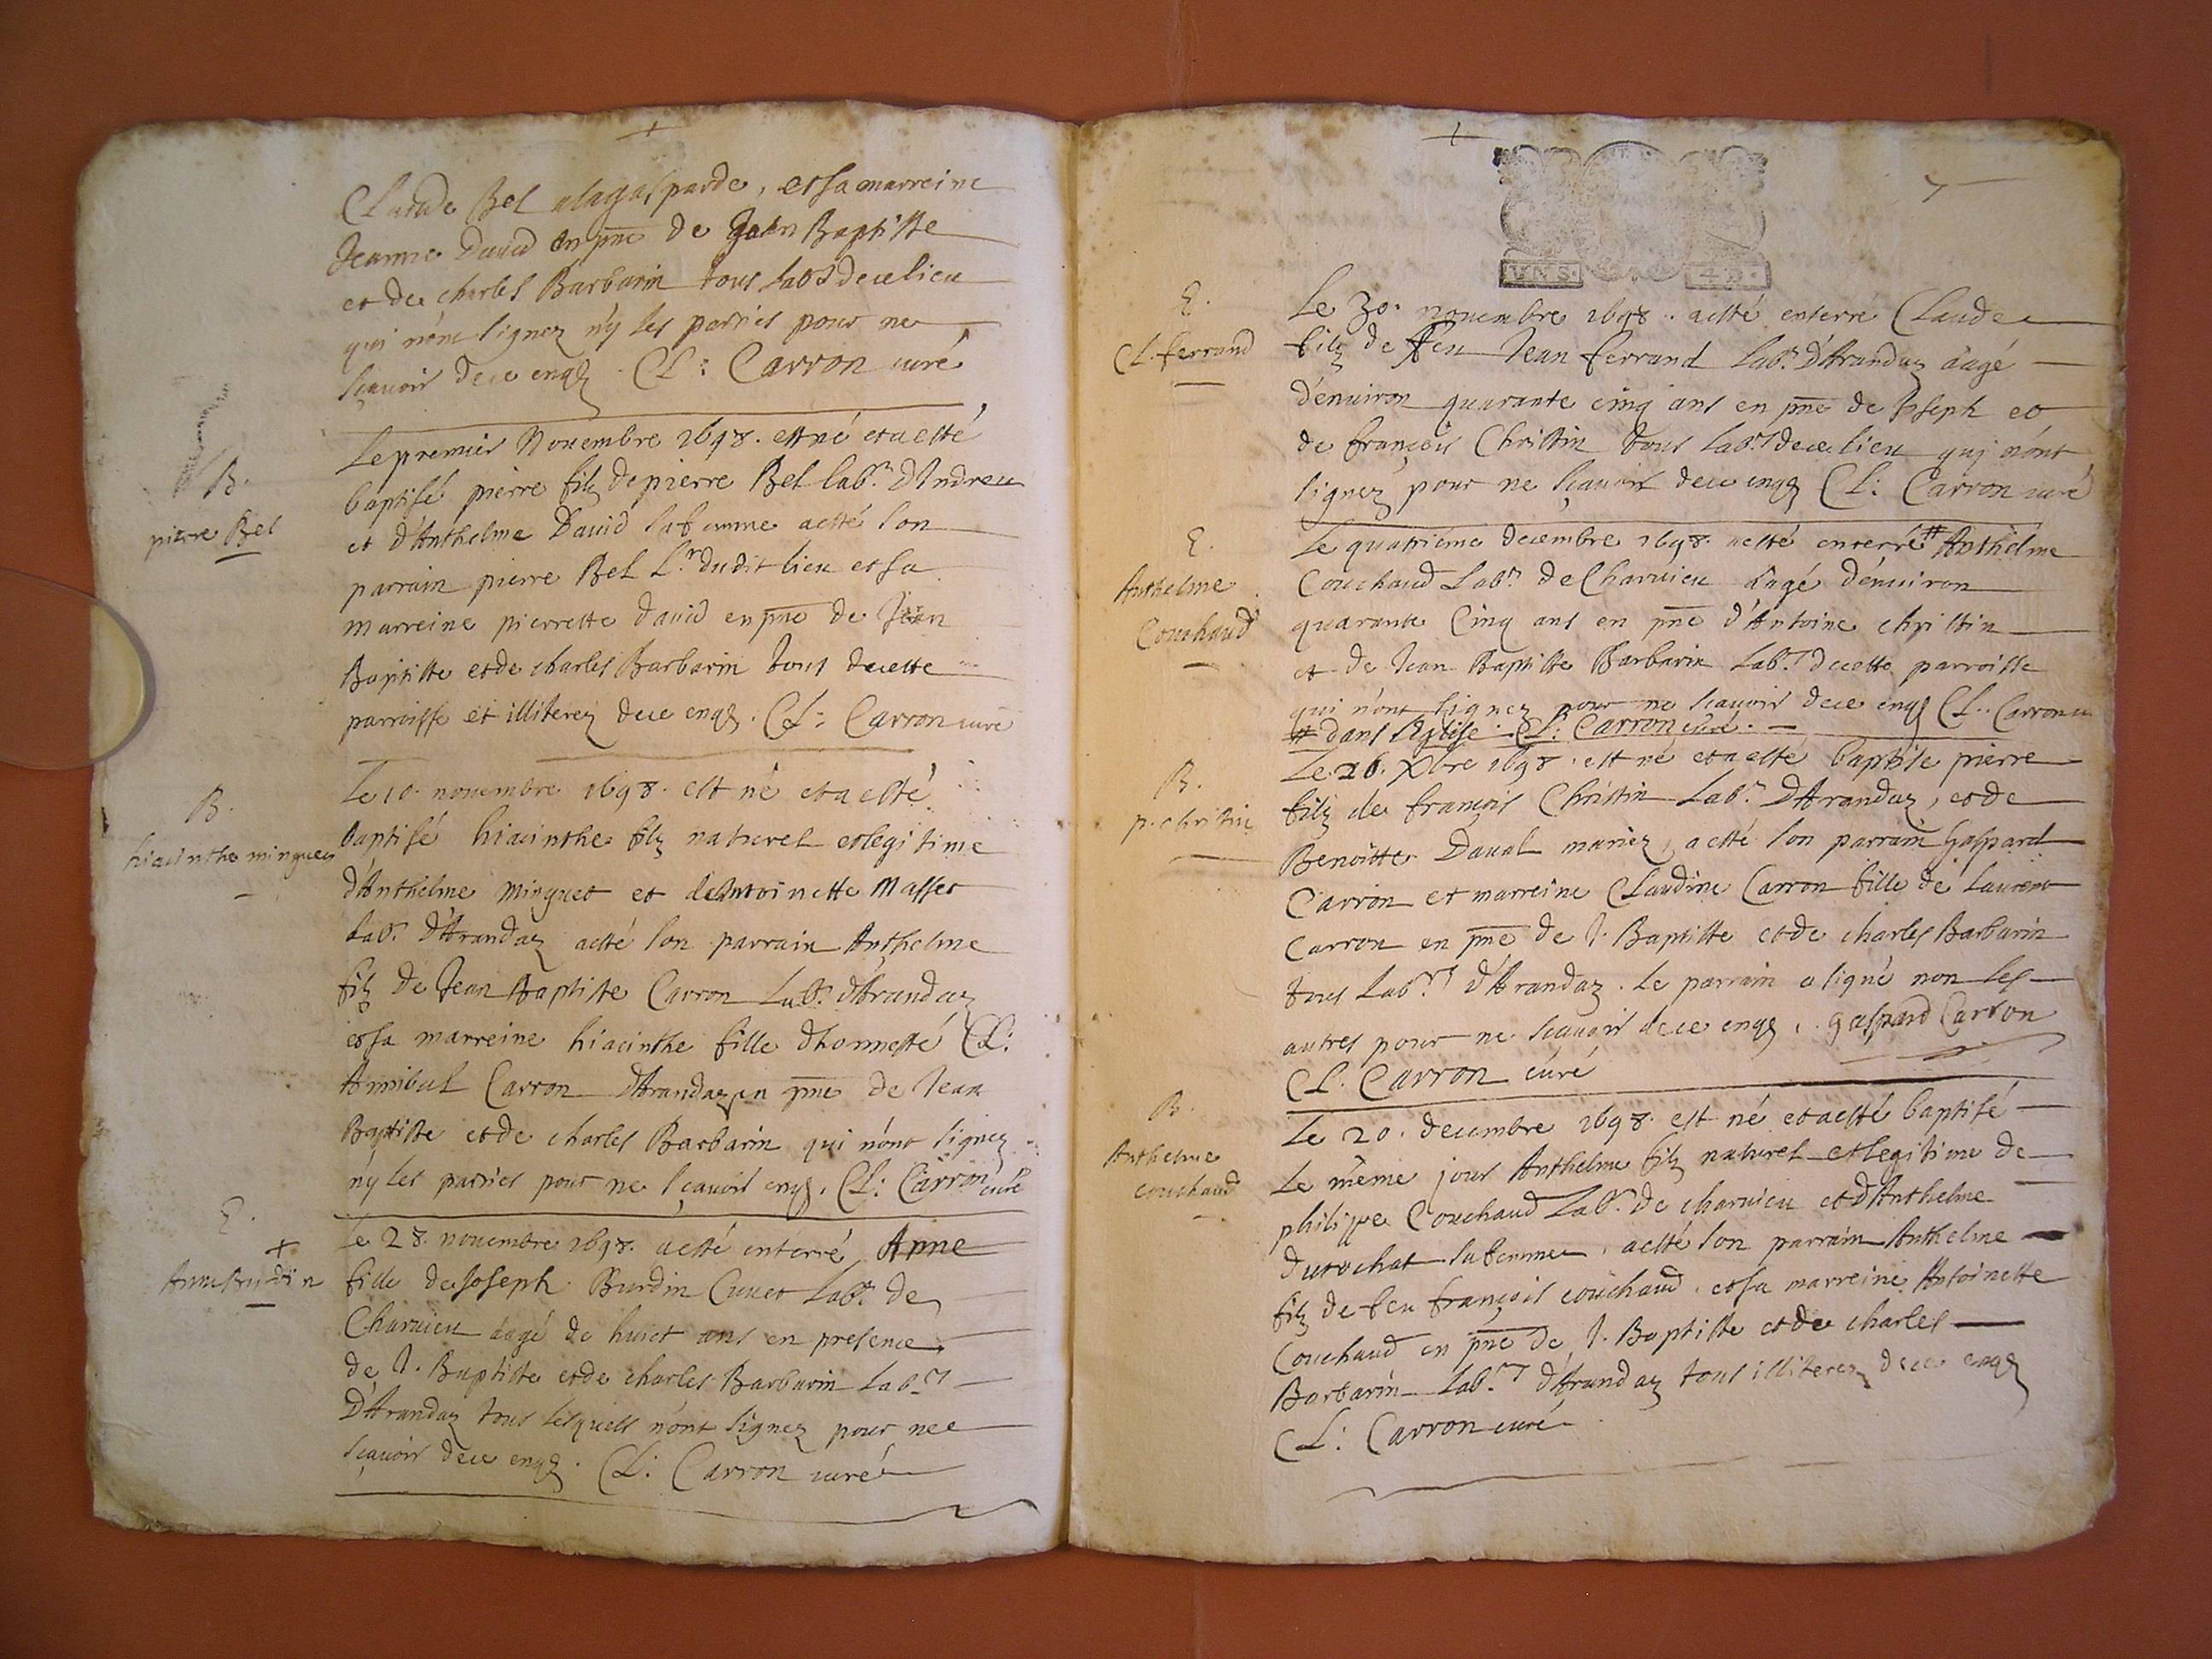 Claude Bel alagasparde, et sa marreine
Jeanne Dauid en pn̄e de Jean Baptiste
et de charles Barbarin tous lab.rs de ce lieu
qui n'ont signez n'y les parties pour ne
sçauoir de ce enq. Cl: Carron curé
B.
pierre Bel
Le premier Nouembre 1698. est né et a esté
baptisé pierre filz de pierre Bel lab.r d'Indrieu
et d'Anthelme Dauid sa femme a esté son
parrain pierre Bel L.r du dit lieu et sa
marreine pierrette dauid en pn̄e de Jean
Baptiste et de charles Barbarin tous de cette
parroisse et illiterez de ce enq. Cl: Carron curé
B.
hiacinthe minguet
Le 10. nouembre 1698. est né et a esté
baptisé hiacinthe filz naturel et legitime
d'Anthelme Minguet et de Antoinette Masset
lab.r d'Arandaz a esté son parrain Anthelme
filz de Jean Baptiste Carron Lab.r d'Arandaz
et sa marreine hiacinthe fille d'honnesté Cl:
Annibal Carron d'Arandaz en pn̄e de Jean
Baptiste et de charles Barbarin qui n'ont signez
n'y les parties pour ne sçauoir enq. Cl: Carron curé
E.
+
Anne Burdin
Le 28. nouembre 1698. a esté enterré Anne
fille de Joseph Burdin Cuuet Lab.r de
Charuieu aagé de huict ans en presence
de J. Baptiste et de charles Barbarin Lab.rs
D'Arandaz tous lesquels n'ont signez pour ne
sçauoir de ce enq. Cl: Carron curé
7
E.
Cl. ferrand
Le 30. nouembre 1698. a esté enterré Claude
filz de feu Jean ferrand Lab.r d'Arandaz aagé
d'enuiron quarante cinq ans en pn̄e de Joseph et
de françois Christin tous lab.rs de ce lieu qui n'ont
signez pour ne sçauoir de ce enq. Cl: Carron curé
E.
Anthelme
Couchaud
Le quatriéme decembre 1698. a esté enterré # Anthelme
Couchaud Lab.r de Charuieu aagé d'enuiron
quarante Cinq ans en pn̄e d'Antoine christin
et de Jean Baptiste Barbarin Lab.rs de cette parroisse
qui n'ont signez pour ne scauoir de ce enq. Cl. Carron c
# dans l'Eglise. Cl: Carron curé.
B.
p. christin
Le 26. Xbre 1698. est né et a esté baptisé pierre
filz de françois Christin Lab.r D'Arandaz, et de
Benoitte Daual mariez, a esté son parrain Gaspard
Carron et marreine Claudine Carron fille de Laurent
Carron en pn̄e de J. Baptiste et de charles Barbarin
tous Lab.rs d'Arandaz. Le parrain a signé non les
autres pour ne scauoir de ce enq. Gaspard Carron
Cl. Carron curé
B.
Anthelme
couchaud
Le 20. decembre 1698. est né et a esté baptisé
Le même jour Anthelme filz naturel et legitime de
philippe Couchaud Lab.r de charuieu et d'Anthelme
Durochat sa femme, a esté son parrain Anthelme
filz de feu françois couchaud, et sa marreine Antoinette
Couchaud en pn̄e de J. Baptiste et de charles
Barbarin Lab.rs d'Arandaz tous illiterez de ce enq.
Cl: Carron curé